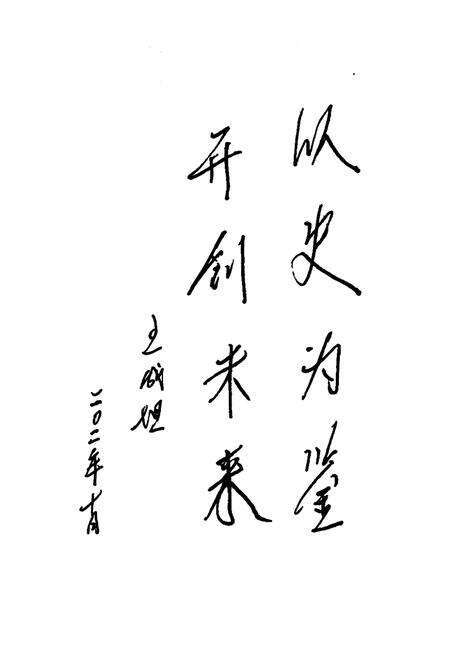 以史为鉴
开创未来
王
二〇二一年十月